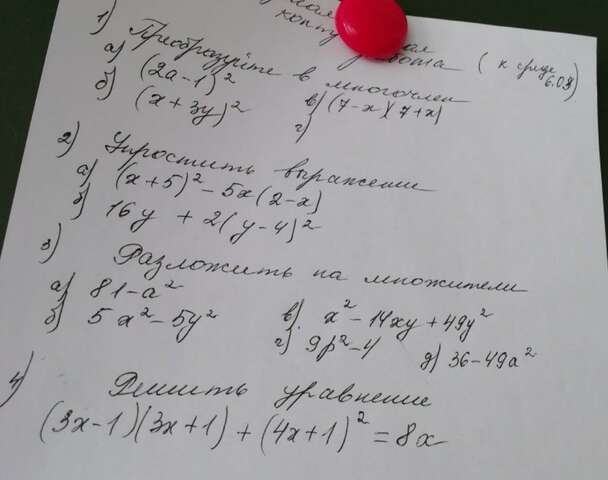 контрольная работа (к среде 6.09)
1) Преобразуйте в многочлен
а) (2a-1)²
б) (x+3y)²
в) (7-x)(7+x)
г)
2) Упростить выражение
а) (x+5)² - 5x(2-x)
б) 16y + 2(y-4)²
3) Разложить на множители
а) 81-a²
б) 5x² - 5y²
в) x² - 14xy + 49y²
г) 9p² - 4
д) 36-49a²
4) Решить уравнение
(3x-1)(3x+1) + (4x+1)² = 8x